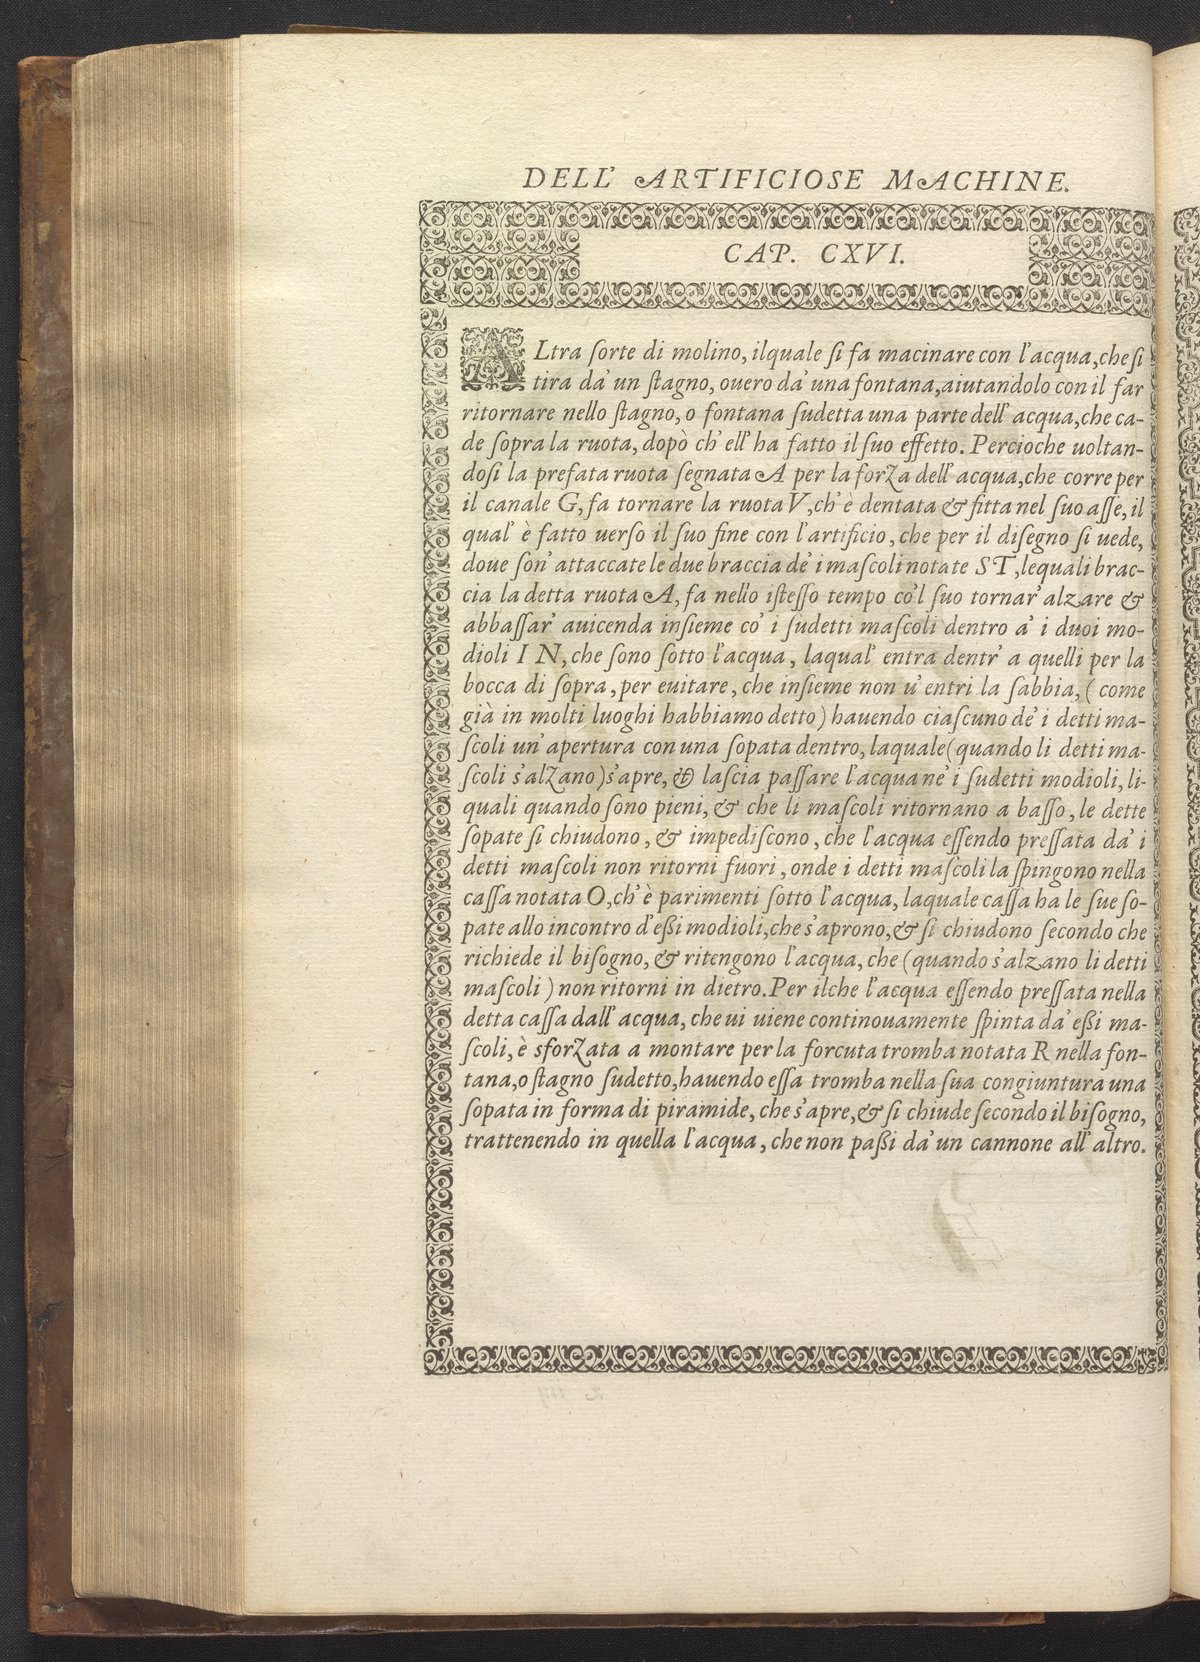 DELL' ARTIFICIOSE MACHINE.
CAP. CXVI.
ALtra ſorte di molino, ilquale ſi fa macinare con l'acqua, che ſi
tira da' un ſtagno, ouero da' una fontana, aiutandolo con il far
ritornare nello ſtagno, o fontana ſudetta una parte dell' acqua, che ca-
de ſopra la ruota, dopò ch' ell' ha fatto il ſuo effetto. Percioche uoltan-
doſi la prefata ruota ſegnata A per la forza dell' acqua, che corre per
il canale G, fa tornare la ruota V, ch' è dentata & fitta nel ſuo aſſe, il
qual' è fatto uerſo il ſuo fine con l'artificio, che per il diſegno ſi uede,
doue ſon' attaccate le due braccia de' i maſcoli notate S T, lequali brac-
cia la detta ruota A, fa nello iſteſſo tempo co'l ſuo tornar' alzare &
abbaſſar' auicenda inſieme co' i ſudetti maſcoli dentro a' i duoi mo-
dioli I N, che ſono ſotto l'acqua, laqual' entra dentr' a quelli per la
bocca di ſopra, per euitare, che inſieme non u' entri la ſabbia, (come
già in molti luoghi habbiamo detto) hauendo ciaſcuno de' i detti ma-
ſcoli un' apertura con una ſopata dentro, laquale (quando li detti ma-
ſcoli s'alzano) s'apre, & laſcia paſſare l'acqua ne' i ſudetti modioli, li-
quali quando ſono pieni, & che li maſcoli ritornano a baſſo, le dette
ſopate ſi chiudono, & impediſcono, che l'acqua eſſendo preſſata da' i
detti maſcoli non ritorni fuori, onde i detti maſcoli la ſpingono nella
caſſa notata O, ch' è parimenti ſotto l'acqua, laquale caſſa ha le ſue ſo-
pate allo incontro d'eßi modioli, che s'aprono, & ſi chiudono ſecondo che
richiede il biſogno, & ritengono l'acqua, che (quando s'alzano li detti
maſcoli) non ritorni in dietro. Per ilche l'acqua eſſendo preſſata nella
detta caſſa dall' acqua, che ui uiene continouamente ſpinta da' eßi ma-
ſcoli, è sforzata a montare per la forcuta tromba notata R nella fon-
tana, o ſtagno ſudetto, hauendo eſſa tromba nella ſua congiuntura una
ſopata in forma di piramide, che s'apre, & ſi chiude ſecondo il biſogno,
trattenendo in quella l'acqua, che non paßi da' un cannone all' altro.